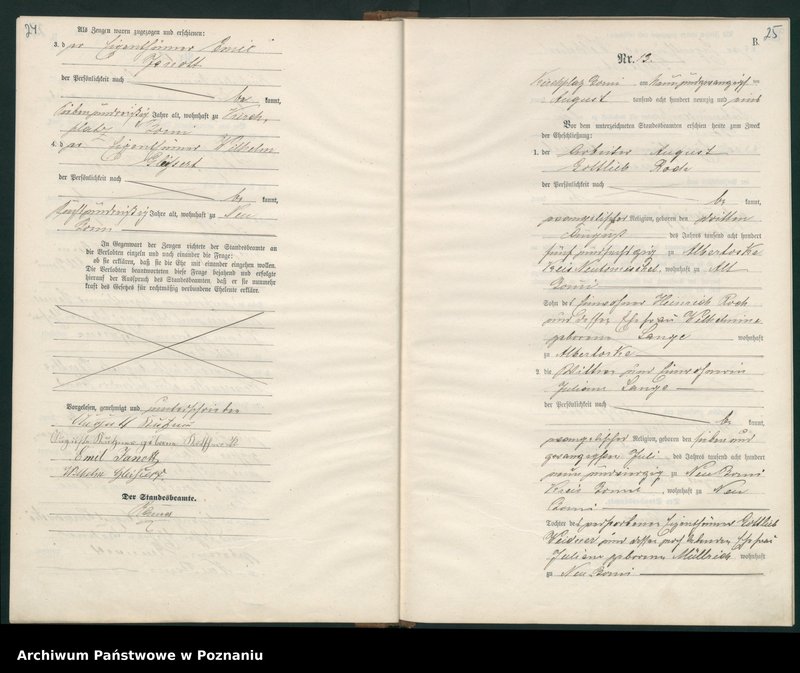 24
Als Zeugen waren zugezogen und erschienen:
3. der Eigenthümer Emil
der Persönlichkeit nach
be kannt,
siebenunddreißig Jahre alt, wohnhaft zu Kirch-
platz Bomi
4. der Eigenthümer Wilhelm
der Persönlichkeit nach
be kannt,
Jahre alt, wohnhaft zu Neu
In Gegenwart der Zeugen richtete der Standesbeamte an
die Verlobten einzeln und nach einander die Frage:
ob sie erklären, daß sie die Ehe mit einander eingehen wollen.
Die Verlobten beantworteten diese Frage bejahend und erfolgte
hierauf der Ausspruch des Standesbeamten, daß er sie nunmehr
kraft des Gesetzes für rechtmäßig verbundene Eheleute erkläre.
Vorgelesen, genehmigt und unterschrieben
August
Auguste geborene
Emil Janott
Wilhelm
Der Standesbeamte.
25
B.
Nr. 13.
Kirchplatz Bomi am neunundzwanzigsten
August tausend acht hundert neunzig und eins
Vor dem unterzeichneten Standesbeamten erschien heute zum Zweck
der Eheschließung:
1. der Arbeiter August
Gottlieb Rode
der Persönlichkeit nach
be kannt,
evangelischer Religion, geboren den dritten
August des Jahres tausend acht hundert
fünf und sechszig zu Albertoske
Kreis Neutomischel, wohnhaft zu Alt
Bomi
Sohn des Einwohner Heinrich Rode
und dessen Ehefrau Wilhelmine
geborene Lange wohnhaft
zu Albertoske
2. die Wittwe und Einwohnerin
Juliane Lange
der Persönlichkeit nach
be kannt,
evangelischer Religion, geboren den sieben und
zwanzigsten Juli des Jahres tausend acht hundert
neun und vierzig zu Neu Bomi
Kreis Bomst, wohnhaft zu Neu
Bomi
Tochter des verstorbenen Eigenthümer Gottlieb
und dessen noch lebenden Ehefrau
Juliane geborene Müllrich wohnhaft
zu Neu Bomi
Archiwum Państwowe w Poznaniu